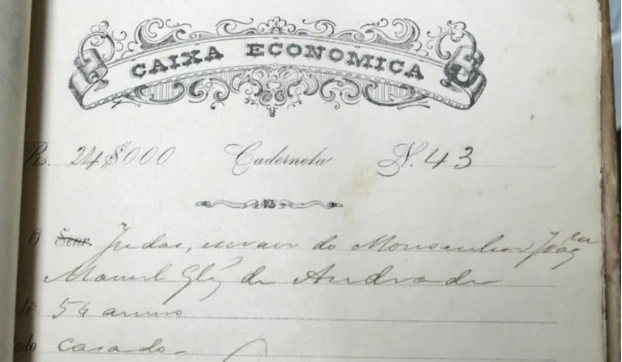 CAIXA ECONOMICA
Rs. 24$000 Caderneta N. 43
O Senr. Judas, escravo do Monsenhor Joaqm
Manuel Glz de Andrade
54 annos
ado casado